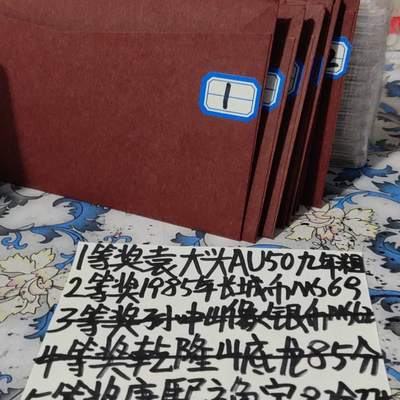 1
2
1等奖袁大头AU50九年粗
2等奖1985年长城币MS69
3等奖孙中山像银币MS62
4等奖乾隆山底龙85分
5等奖康熙